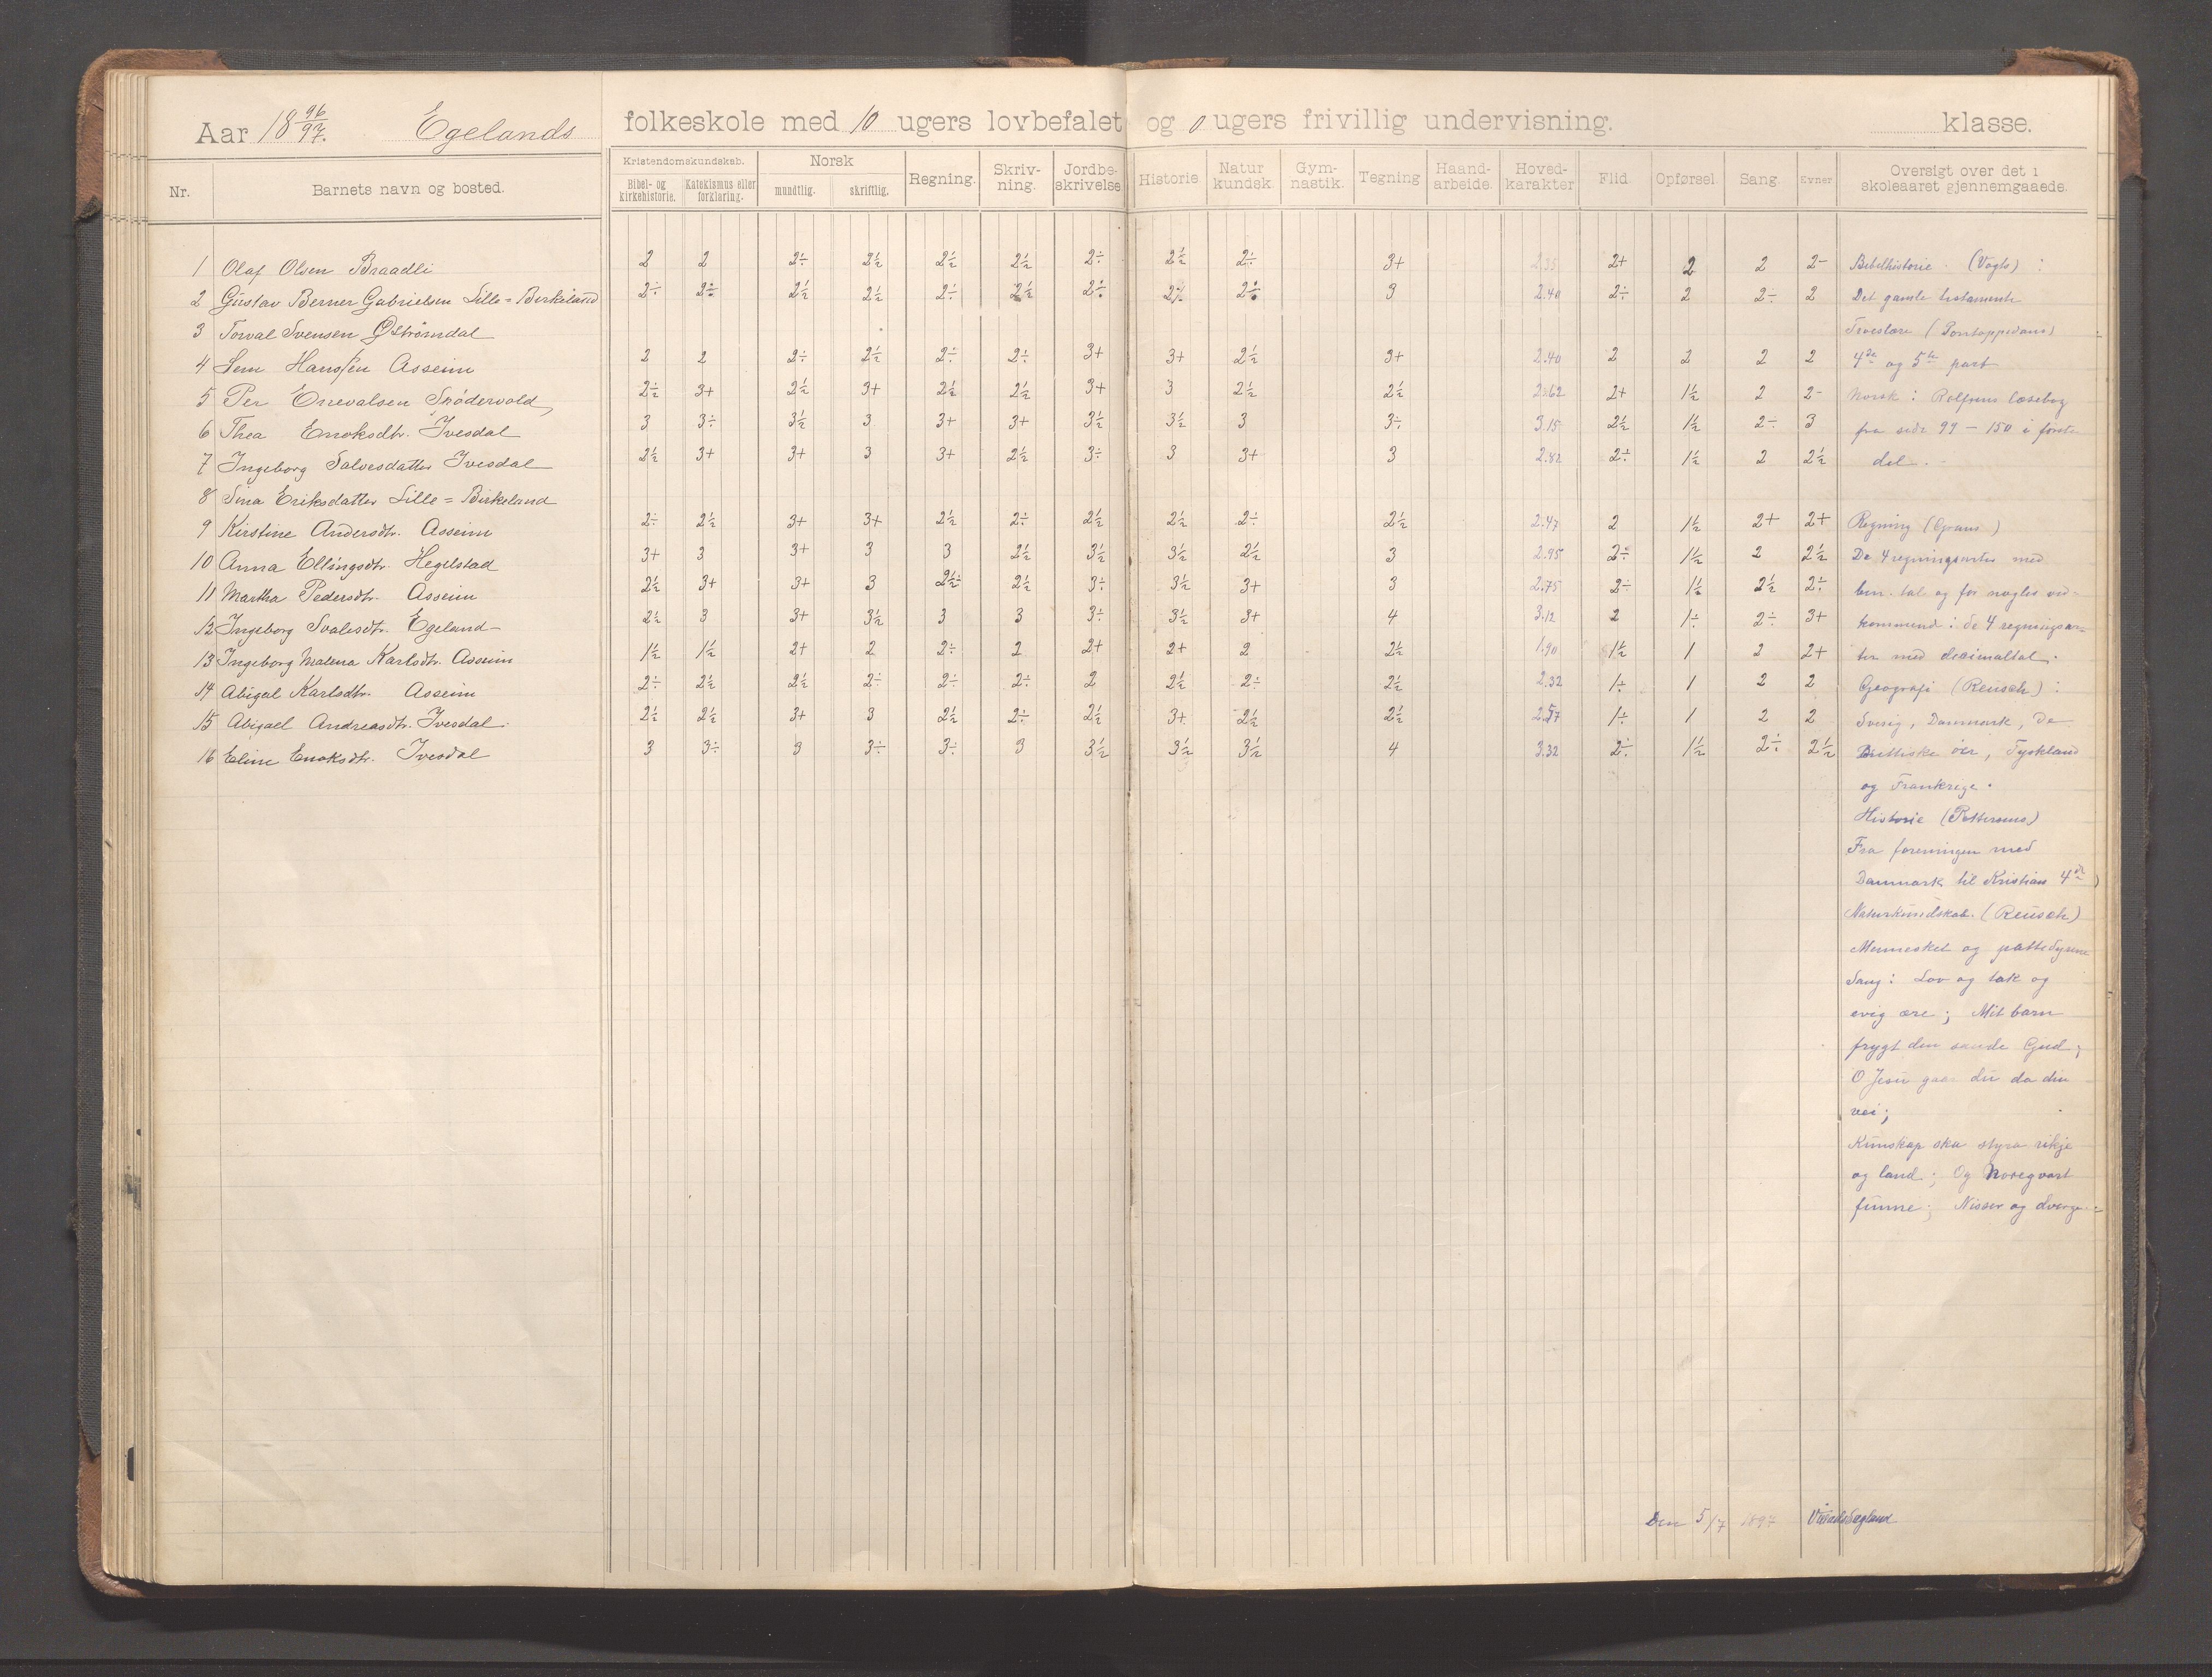 Aar 18 96/97. Egelands folkeskole med 10 ugers lovbefalet og 0 ugers frivillig undervisning. klasse.
Nr. Barnets navn og bosted. Kristendomskundskab. Bibel- og kirkehistorie. Katekismus eller forklaring. Norsk mundtlig. skriftlig. Regning. Skriv-ning. Jordbe-skrivelse Historie. Natur kundsk. Gym-nastik. Tegning Haand-arbeide. Hoved-karakter Flid. Opførsel. Sang. Evner Oversigt over det i skoleaaret gjennemgaaede.
1 Olaf Olsen Braadli 2 2 2÷ 2½ 2½ 2½ 2÷ 2½ 2÷ 3+ 2.35 2+ 2 2 2- Bibelhistorie (Vogts) :
2 Gustav Berner Gabrielsen Lille=Birkeland 2÷ 2÷ 2½ 2½ 2÷ 2½ 2÷ 2½ 2÷ 3 2.40 2÷ 2 2÷ 2 Det gamle testamente
3 Torval Svensen Østrømdal Troeslære (Pontoppidans)
4 Sem Hansen Asseim 2 2 2÷ 2½ 2÷ 2÷ 3+ 3+ 2½ 3+ 2.40 2 2 2 2 4de og 5te part
5 Per Enevalsen Skødervold 2÷ 3+ 2½ 3+ 2½ 2½ 3+ 3 2½ 2½ 2.62 2+ 1½ 2 2- Norsk : Rolfsens læsebog
6 Thea Enoksdtr. Ivesdal 3 3÷ 3½ 3 3+ 3+ 3½ 3½ 3 3÷ 3.15 2½ 1½ 2÷ 3 fra side 99 - 150 i første
7 Ingeborg Salvesdatter Ivesdal 2½ 3+ 3+ 3 3+ 2½ 3÷ 3 3+ 3 2.82 2÷ 1½ 2 2½ del.
8 Sina Eriksdatter Lille=Birkeland
9 Kirstine Andersdtr. Asseim 2÷ 2½ 3+ 3+ 2½ 2÷ 2½ 2½ 2÷ 2½ 2.47 2 1½ 2+ 2+ Regning
10 Anna Ellingsdtr. Hegelstad 3+ 3 3+ 3 3 2½ 3½ 3½ 2½ 3 2.95 2÷ 1½ 2 2½ De 4 regningsarter med
11 Martha Pedersdtr. Asseim 2½ 3+ 3+ 3 2½÷ 2½ 3÷ 3½ 3+ 3 2.75 2÷ 1½ 2½ 2÷ ben. tal og for nogles ved-
12 Ingeborg Svalesdtr. Egeland 2½ 3 3+ 3½ 3 3 3÷ 3½ 3+ 4 3.12 2 1÷ 2÷ 3+ kommend : de 4 regningsar-
13 Ingeborg Malena Karlsdtr. Asseim 1½ 1½ 2+ 2 2÷ 2 2+ 2+ 2 2½ 1.90 1½ 1 2 2+ ter med decimaltal.
14 Abigal Karlsdtr. Asseim 2÷ 2½ 2½ 2÷ 2÷ 2÷ 2 2½ 2÷ 2½ 2.32 1÷ 1 2 2 Geografi (Reusch) :
15 Abigael Andreasdtr. Ivesdal 2½ 2½ 3+ 3 2½ 2÷ 2½ 3+ 2½ 2½ 2.57 1÷ 1 2 2 Sverig, Danmark, De
16 Eline Enoksdtr. Ivesdal 3 3÷ 3 3÷ 3÷ 3 3½ 3½ 3½ 4 3.32 2÷ 1½ 2÷ 2½ Brittiske øer, Tyskland
og Frankrige.
Historie
Fra foreningen med
Danmark til Kristian 4de
Naturkundskab. (Reusch)
Mennesket og pattedyrene
Sang : Lov og tak og
evig ære ; Mit barn
frygt den sande Gud ;
O Jesu gaar du da din
vei ;
Kunskap ska styra rikje
og land ; Og Noreg vart
funne ; Nisser og dverge
Den 5/7 1897